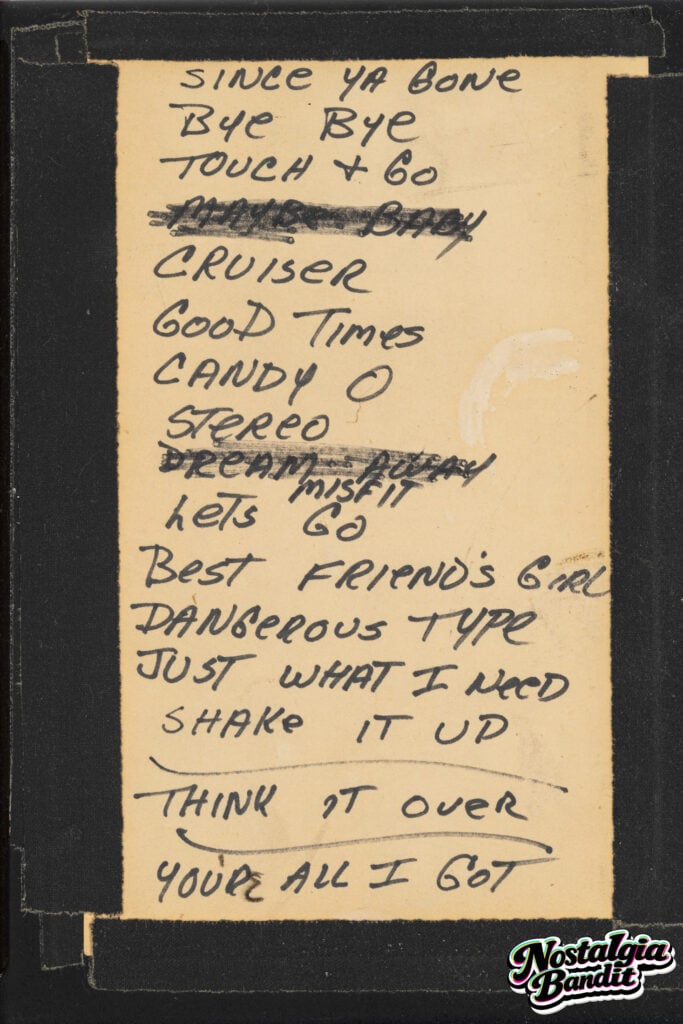 SINCE YA GONE
BYE BYE
TOUCH + GO
MAYBE BABY
CRUISER
GOOD TIMES
CANDY O
STEREO
DREAM AWAY
MISFIT
LETS GO
BEST FRIEND'S GIRL
DANGEROUS TYPE
JUST WHAT I NEED
SHAKE IT UP
THINK IT OVER
YOU'R ALL I GOT
Nostalgia
Bandit